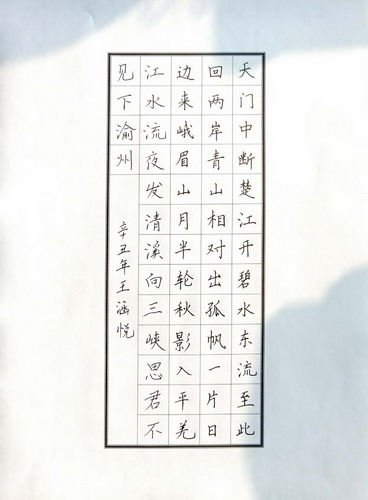 天门中断楚江开碧水东流至此
回两岸青山相对出孤帆一片日
边来峨眉山月半轮秋影入平羌
江水流夜发清溪向三峡思君不
见下渝州
辛丑年王涵悦